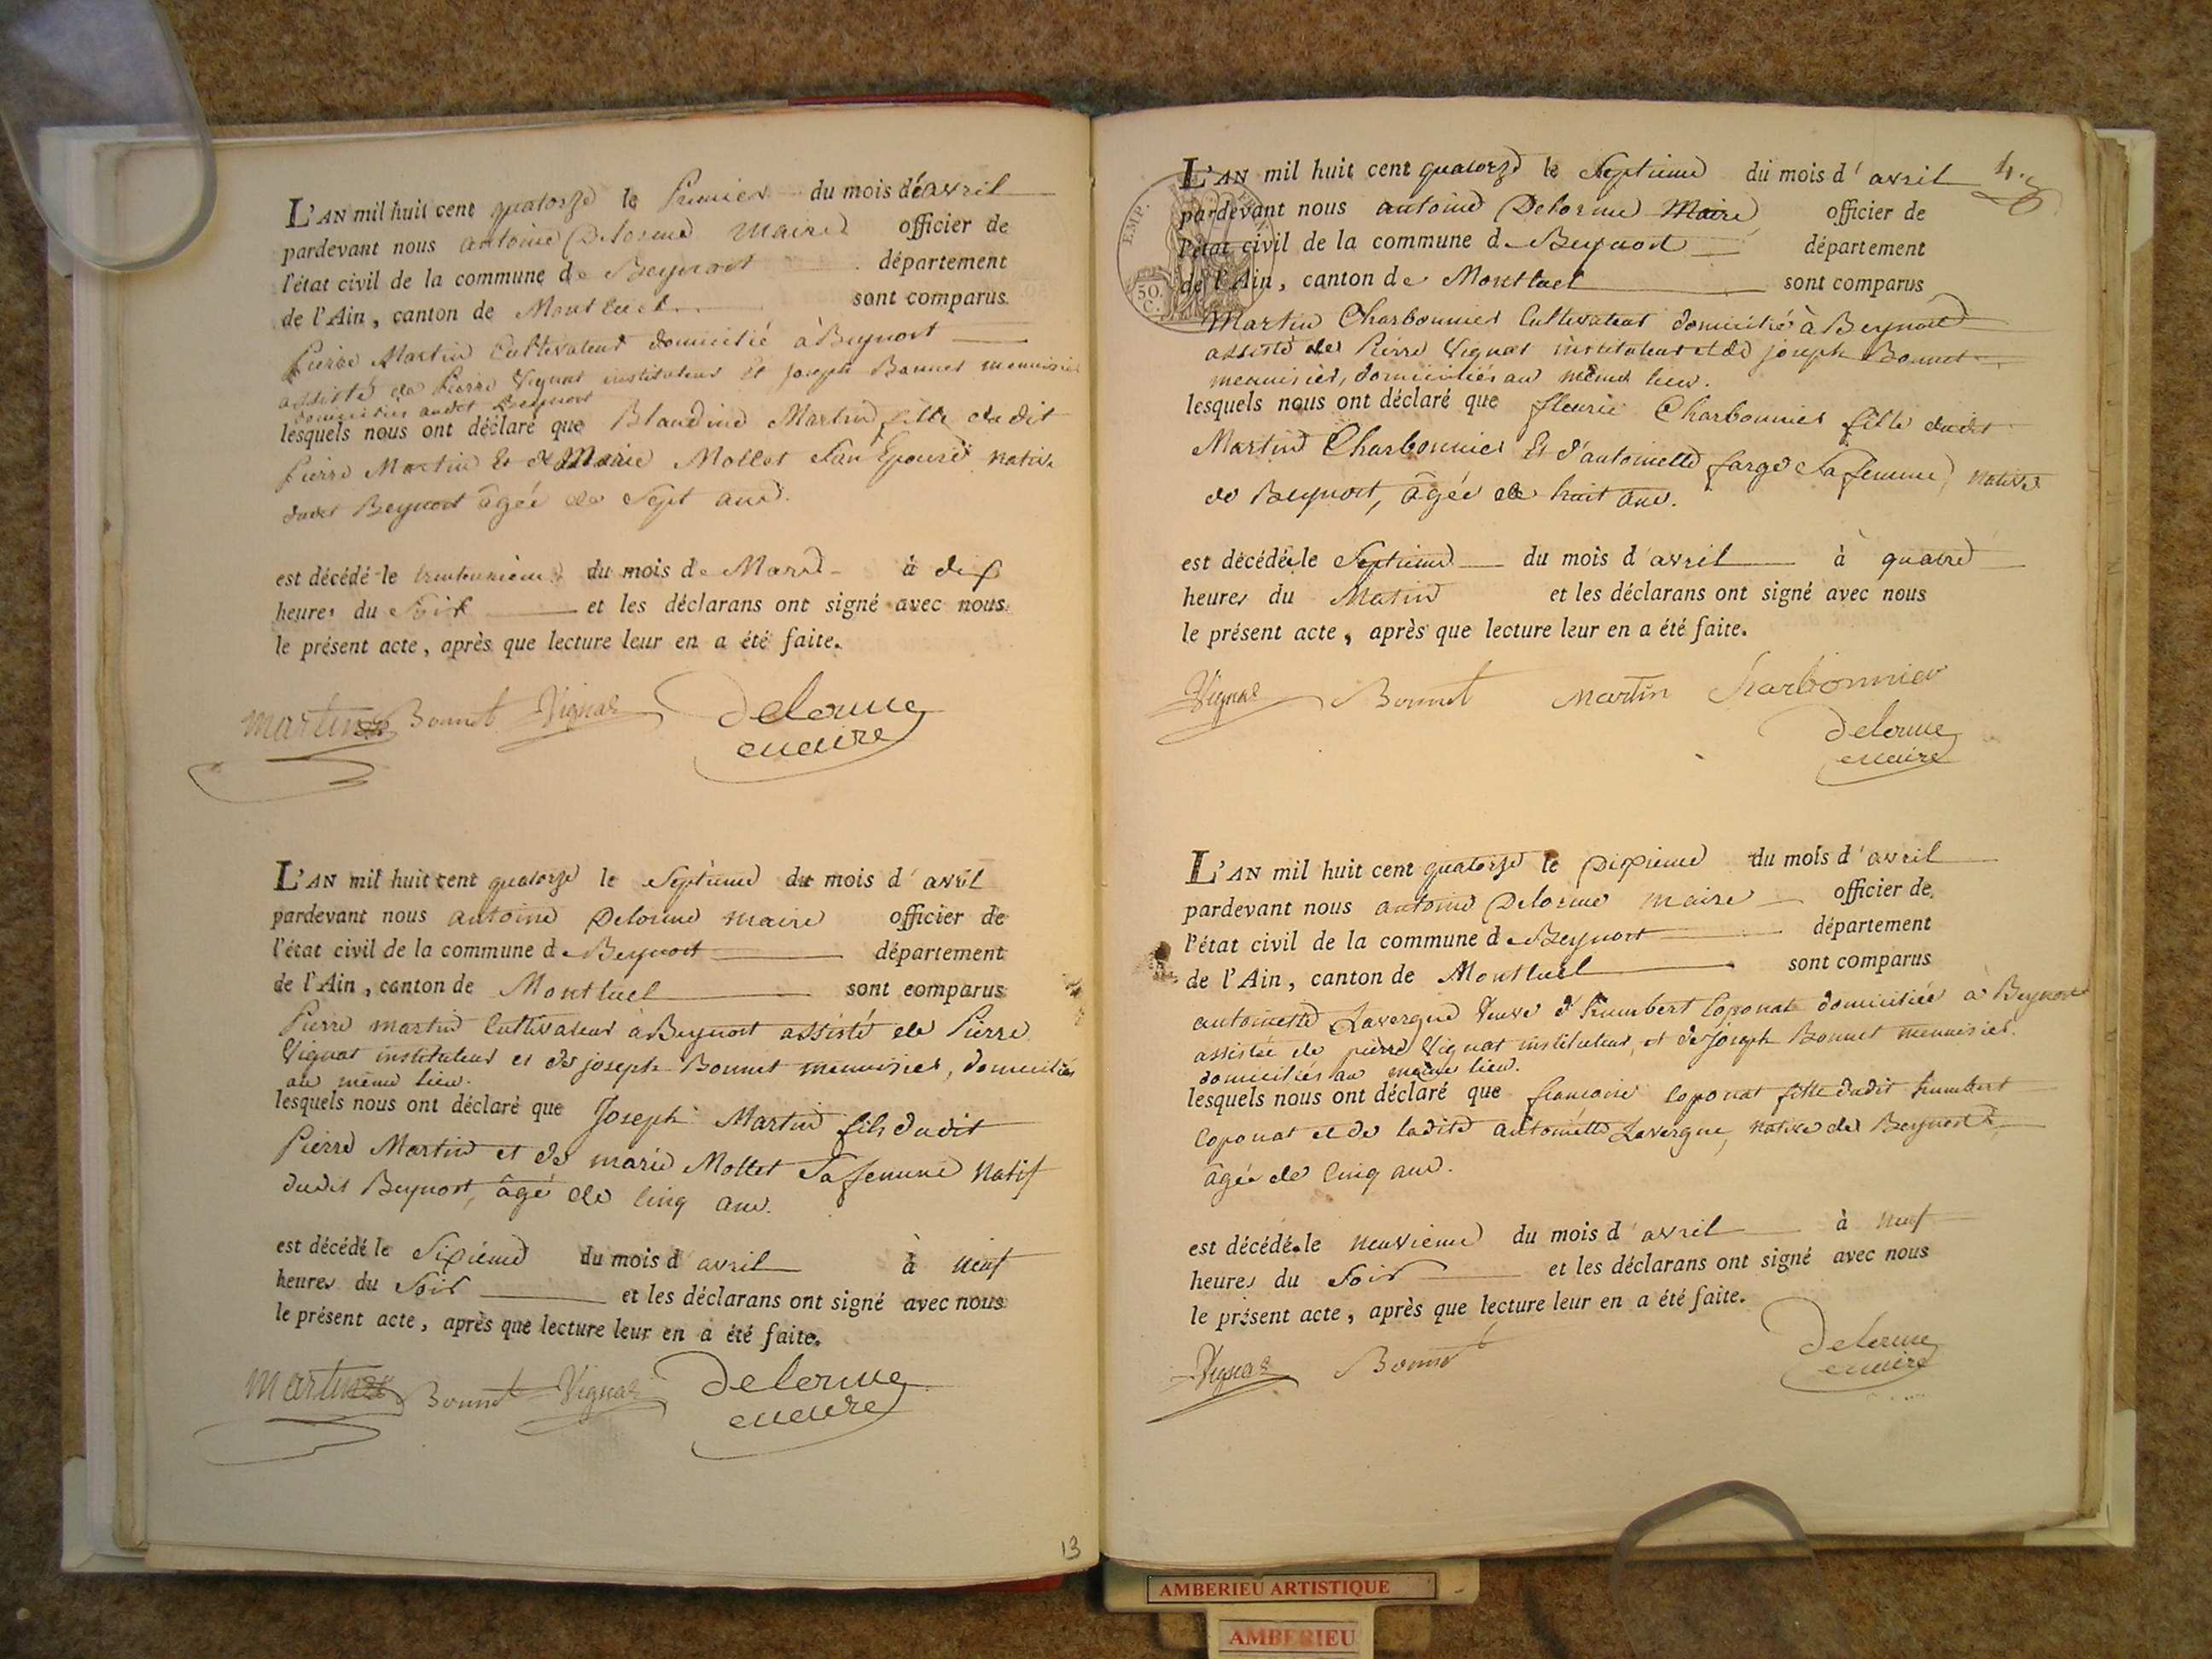 L'AN mil huit cent quatorze le Premier du mois de avril
pardevant nous antoine Delorme Maire officier de
l'état civil de la commune de Beynost département
de l'Ain, canton de Montluel sont comparus
Pierre Martin Cultivateur domicilié à Beynost
assisté de Pierre Vignat instituteur et joseph Bonnet menuisier
domiciliés audit Beynost
lesquels nous ont déclaré que Blandine Martin fille dudit
Pierre Martin Et de Marie Mollet Son Epouse native
dudit Beynost âgée de Sept ans.
est décédé le trenteunième du mois de Mars à dix
heures du Soir et les déclarans ont signé avec nous
le présent acte, après que lecture leur en a été faite.
martin Bonnet Vignat Delorme
maire
L'AN mil huit cent quatorze le Septième du mois d'avril
pardevant nous antoine Delorme maire officier de
l'état civil de la commune de Beynost département
de l'Ain, canton de Montluel sont comparus
Pierre martin Cultivateur à Beynost assisté de Pierre
Vignat instituteur et de joseph Bonnet menuisier, domiciliés
au même lieu.
lesquels nous ont déclaré que Joseph Martin fils dudit
Pierre Martin et de marie Mollet Sa femme natif
dudit Beynost, âgé de Cinq ans.
est décédé le Sixième du mois d'avril à neuf
heures du Soir et les déclarans ont signé avec nous
le présent acte, après que lecture leur en a été faite.
martin Bonnet Vignat Delorme
maire
13
L'AN mil huit cent quatorze le Septième du mois d'avril 4.
pardevant nous antoine Delorme Maire officier de
l'état civil de la commune de Beynost département
de l'Ain, canton de Montluel sont comparus
EMP.
50.
C.
Martin Charbonnier Cultivateur domicilié à Beynost
assisté de Pierre Vignat instituteur et de joseph Bonnet
menuisier, domiciliés au même lieu.
lesquels nous ont déclaré que fleurie Charbonnier fille dudit
Martin Charbonnier Et d'antoinette farge Sa femme, native
de Beynost, âgée de huit ans.
est décédée le Septième du mois d'avril à quatre
heures du Matin et les déclarans ont signé avec nous
le présent acte, après que lecture leur en a été faite.
Vignat Bonnet martin Charbonnier
Delorme
maire
L'AN mil huit cent quatorze le Dixième du mois d'avril
pardevant nous antoine Delorme maire officier de
l'état civil de la commune de Beynost département
de l'Ain, canton de Montluel sont comparus
antoinette Lavergne Veuve d'humbert Coponat domiciliée à Beynost
assistée de pierre Vignat instituteur, et de Joseph Bonnet menuisier.
domiciliés au même lieu.
lesquels nous ont déclaré que francoise Coponat fille dudit humbert
Coponat et de ladite antoinette Lavergne, native de Beynost,
âgée de Cinq ans.
est décédée le neuvième du mois d'avril à neuf
heures du Soir et les déclarans ont signé avec nous
le présent acte, après que lecture leur en a été faite.
Vignat Bonnet Delorme
maire
AMBERIEU ARTISTIQUE
AMBERIEU